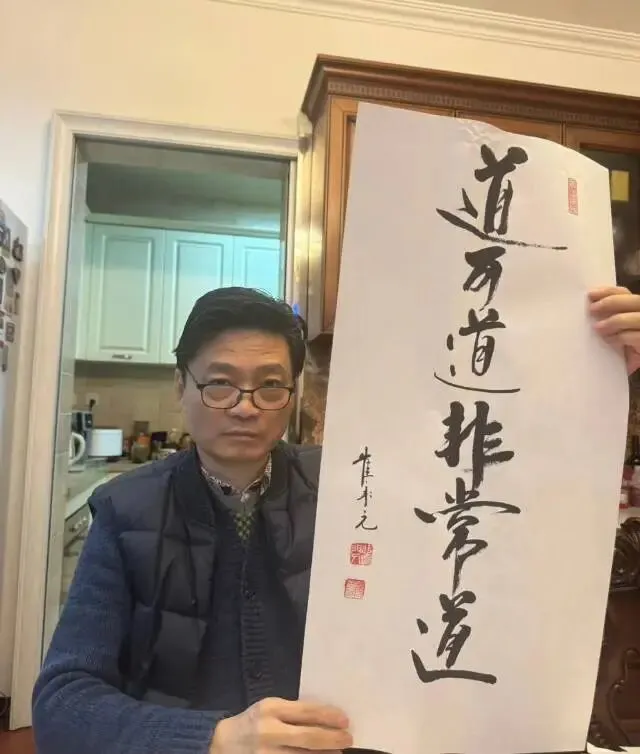 道可道非常道
崔永元